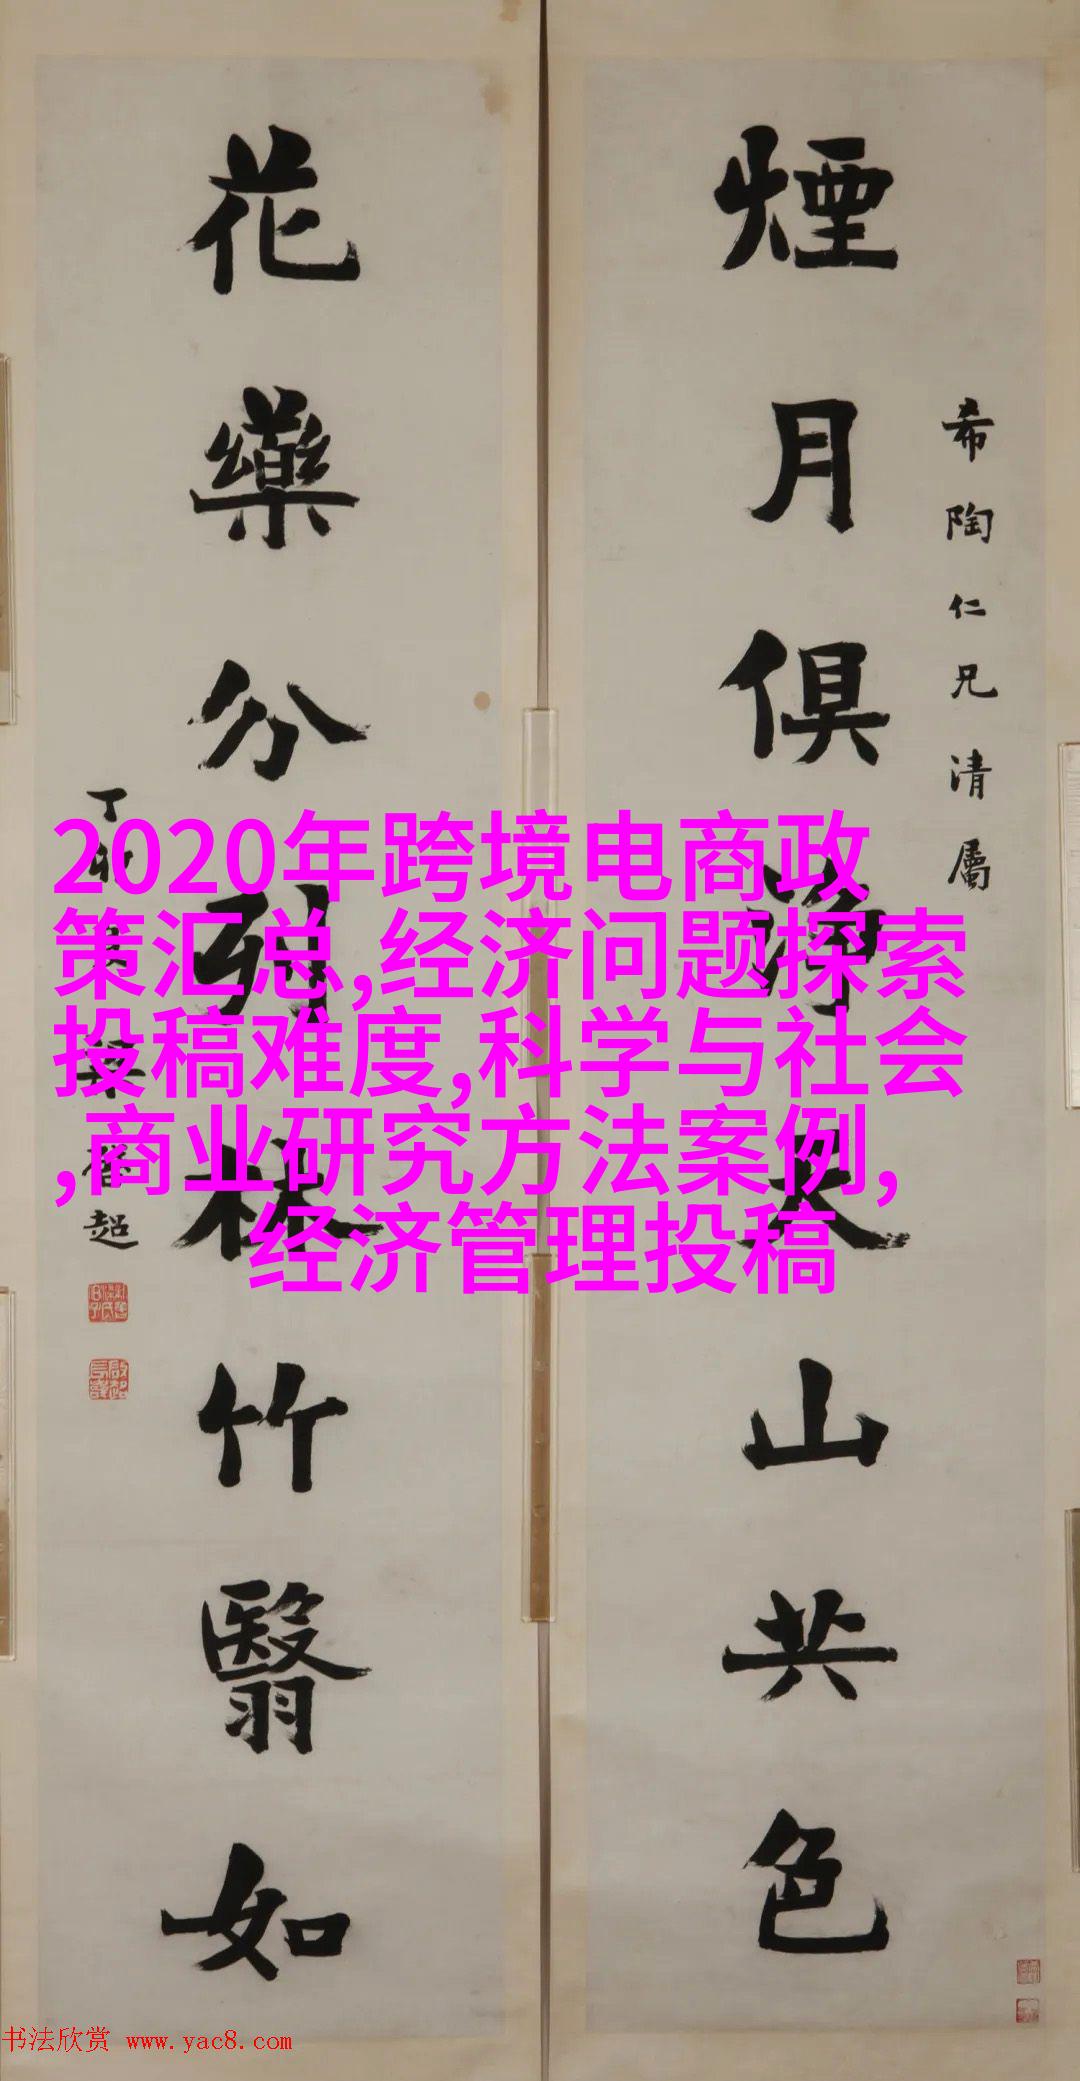 希陶仁兄清屬
煙月俱淨天山共色
花藥分列林竹翳如
丁卯梁啓超
2020年跨境电商政
策汇总,经济问题探索
投稿难度,科学与社会
,商业研究方法案例,
经济管理投稿
书法欣赏 www.yac8.com